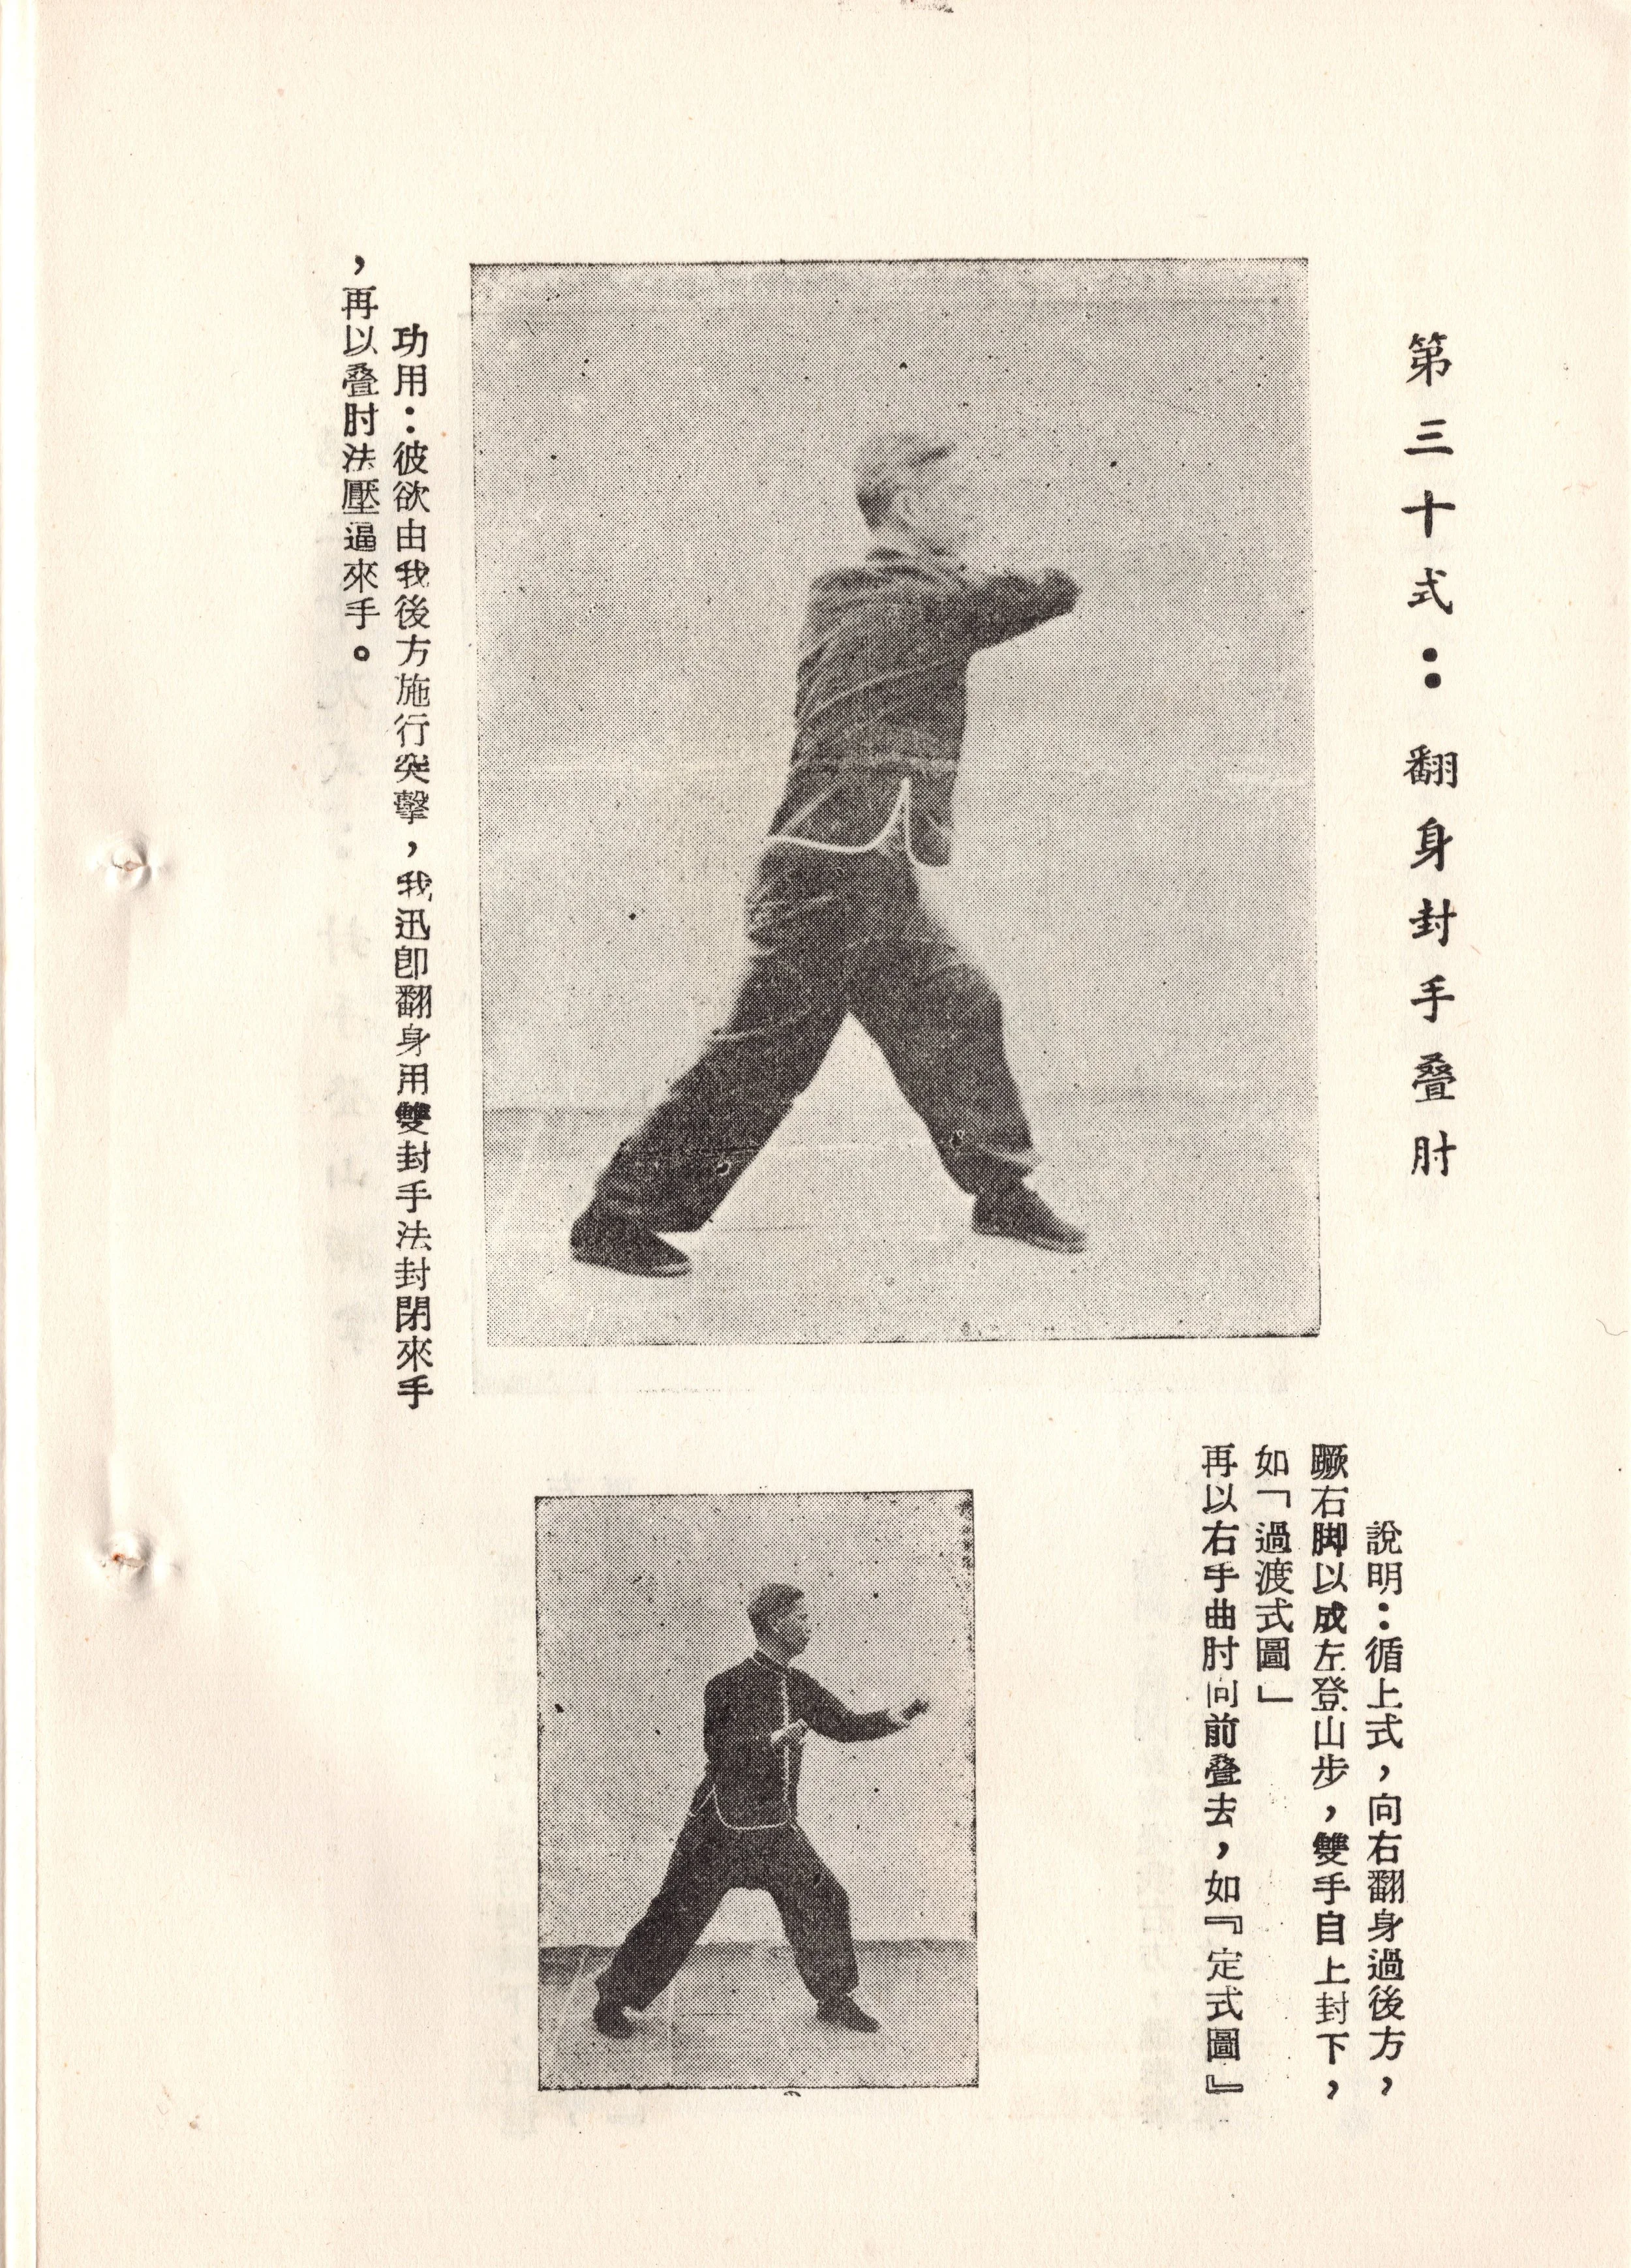 第三十式：翻身封手叠肘
說明：循上式，向右翻身過後方，
蹶右脚以成左登山步，雙手自上封下，
如「過渡式圖」
再以右手曲肘向前叠去，如『定式圖』
功用：彼欲由我後方施行突擊，我迅卽翻身用雙封手法封閉來手
，再以叠肘法壓逼來手。